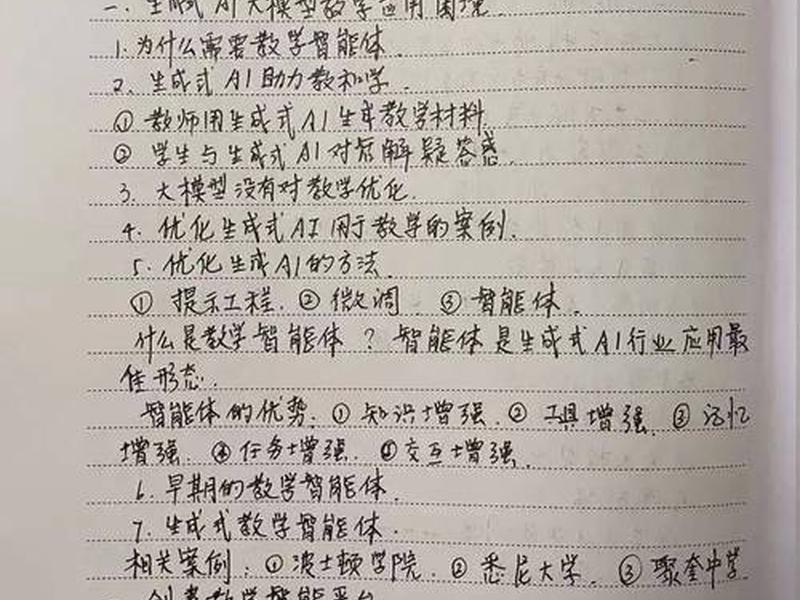 一、生成式AI大模型教学应用困境.
1.为什么需要教学智能体.
2、生成式AI助力教和学.
① 教师用生成式AI生成教学材料.
② 学生与生成式AI对话解疑答惑.
3、大模型没有对教学优化.
4.优化生成式AI用于教学的案例.
5.优化生成AI的方法.
① 提示工程.② 微调.③ 智能体.
什么是教学智能体?智能体是生成式AI行业应用最
佳形态.
智能体的优势:① 知识增强.② 工具增强.③ 记忆
增强.④ 任务增强.⑤ 交互增强.
6.早期的教学智能体.
7.生成式教学智能体.
相关案例:① 波士顿学院.② 悉尼大学.③ 聚奎中学